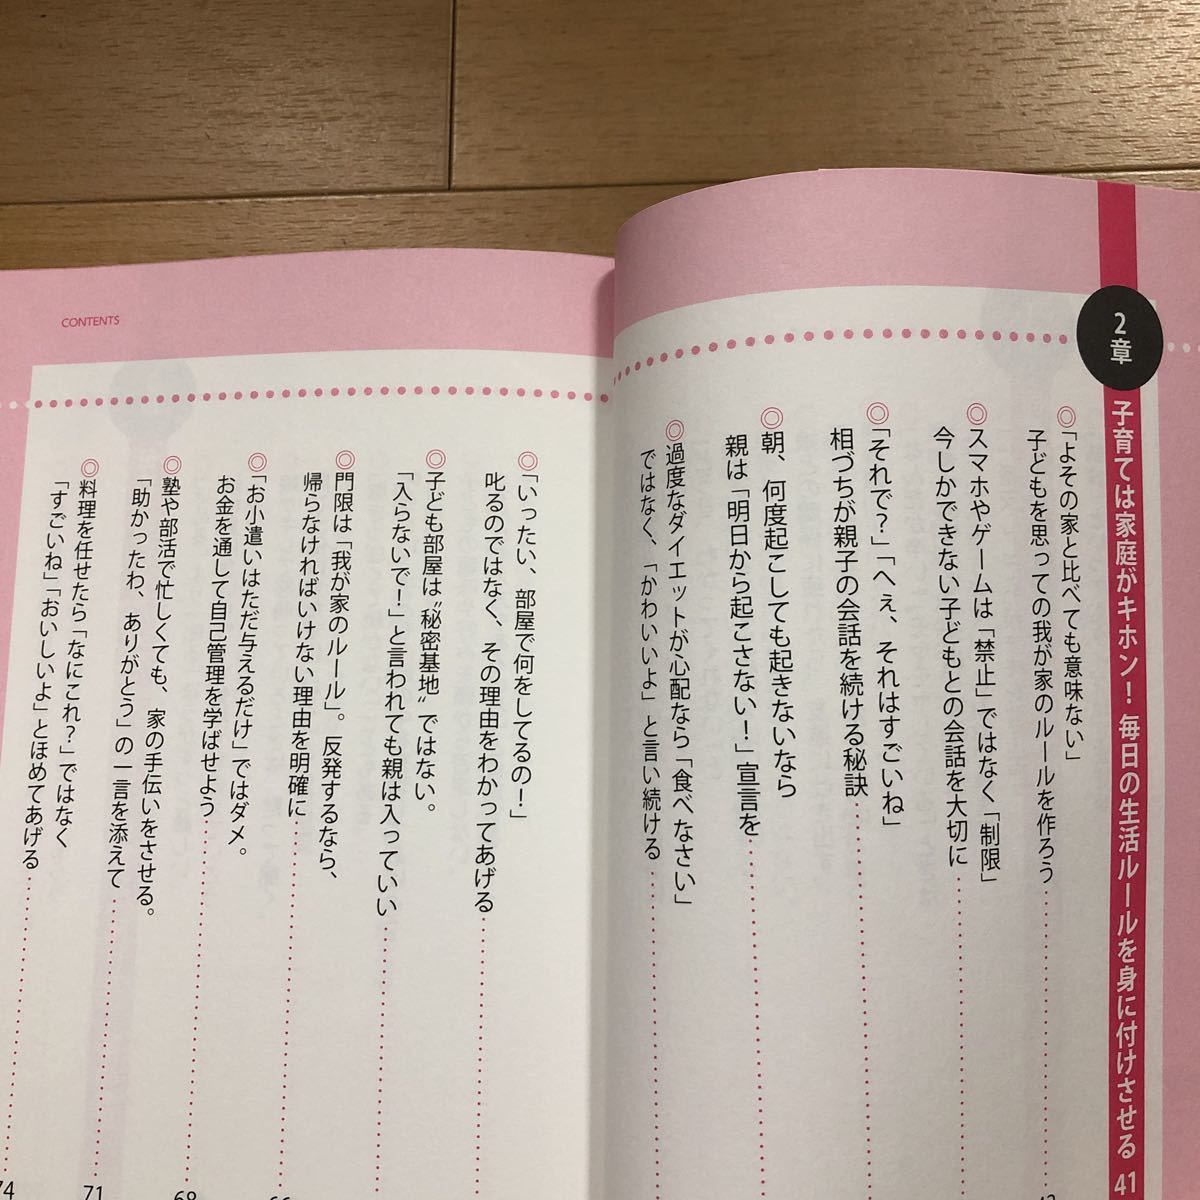 2章
子育ては家庭がキホン！毎日の生活ルールを身に付けさせる 41
◎「よその家と比べても意味ない」
子どもを思っての我が家のルールを作ろう
◎スマホやゲームは「禁止」ではなく「制限」
今しかできない子どもとの会話を大切に
◎「それで？」「へぇ、それはすごいね」
相づちが親子の会話を続ける秘訣
◎朝、何度起こしても起きないなら
親は「明日から起こさない！」宣言を
◎過度なダイエットが心配なら「食べなさい」
ではなく、「かわいいよ」と言い続ける
CONTENTS
◎「いったい、部屋で何をしてるの！」
叱るのではなく、その理由をわかってあげる
◎子ども部屋は〝秘密基地〟ではない。
「入らないで！」と言われても親は入っていい
◎門限は「我が家のルール」。反発するなら、
帰らなければいけない理由を明確に
◎「お小遣いはただ与えるだけ」ではダメ。
お金を通して自己管理を学ばせよう
68
◎塾や部活で忙しくても、家の手伝いをさせる。
「助かったわ、ありがとう」の一言を添えて
71
◎料理を任せたら「なにこれ？」ではなく
「すごいね」「おいしいよ」とほめてあげる
74